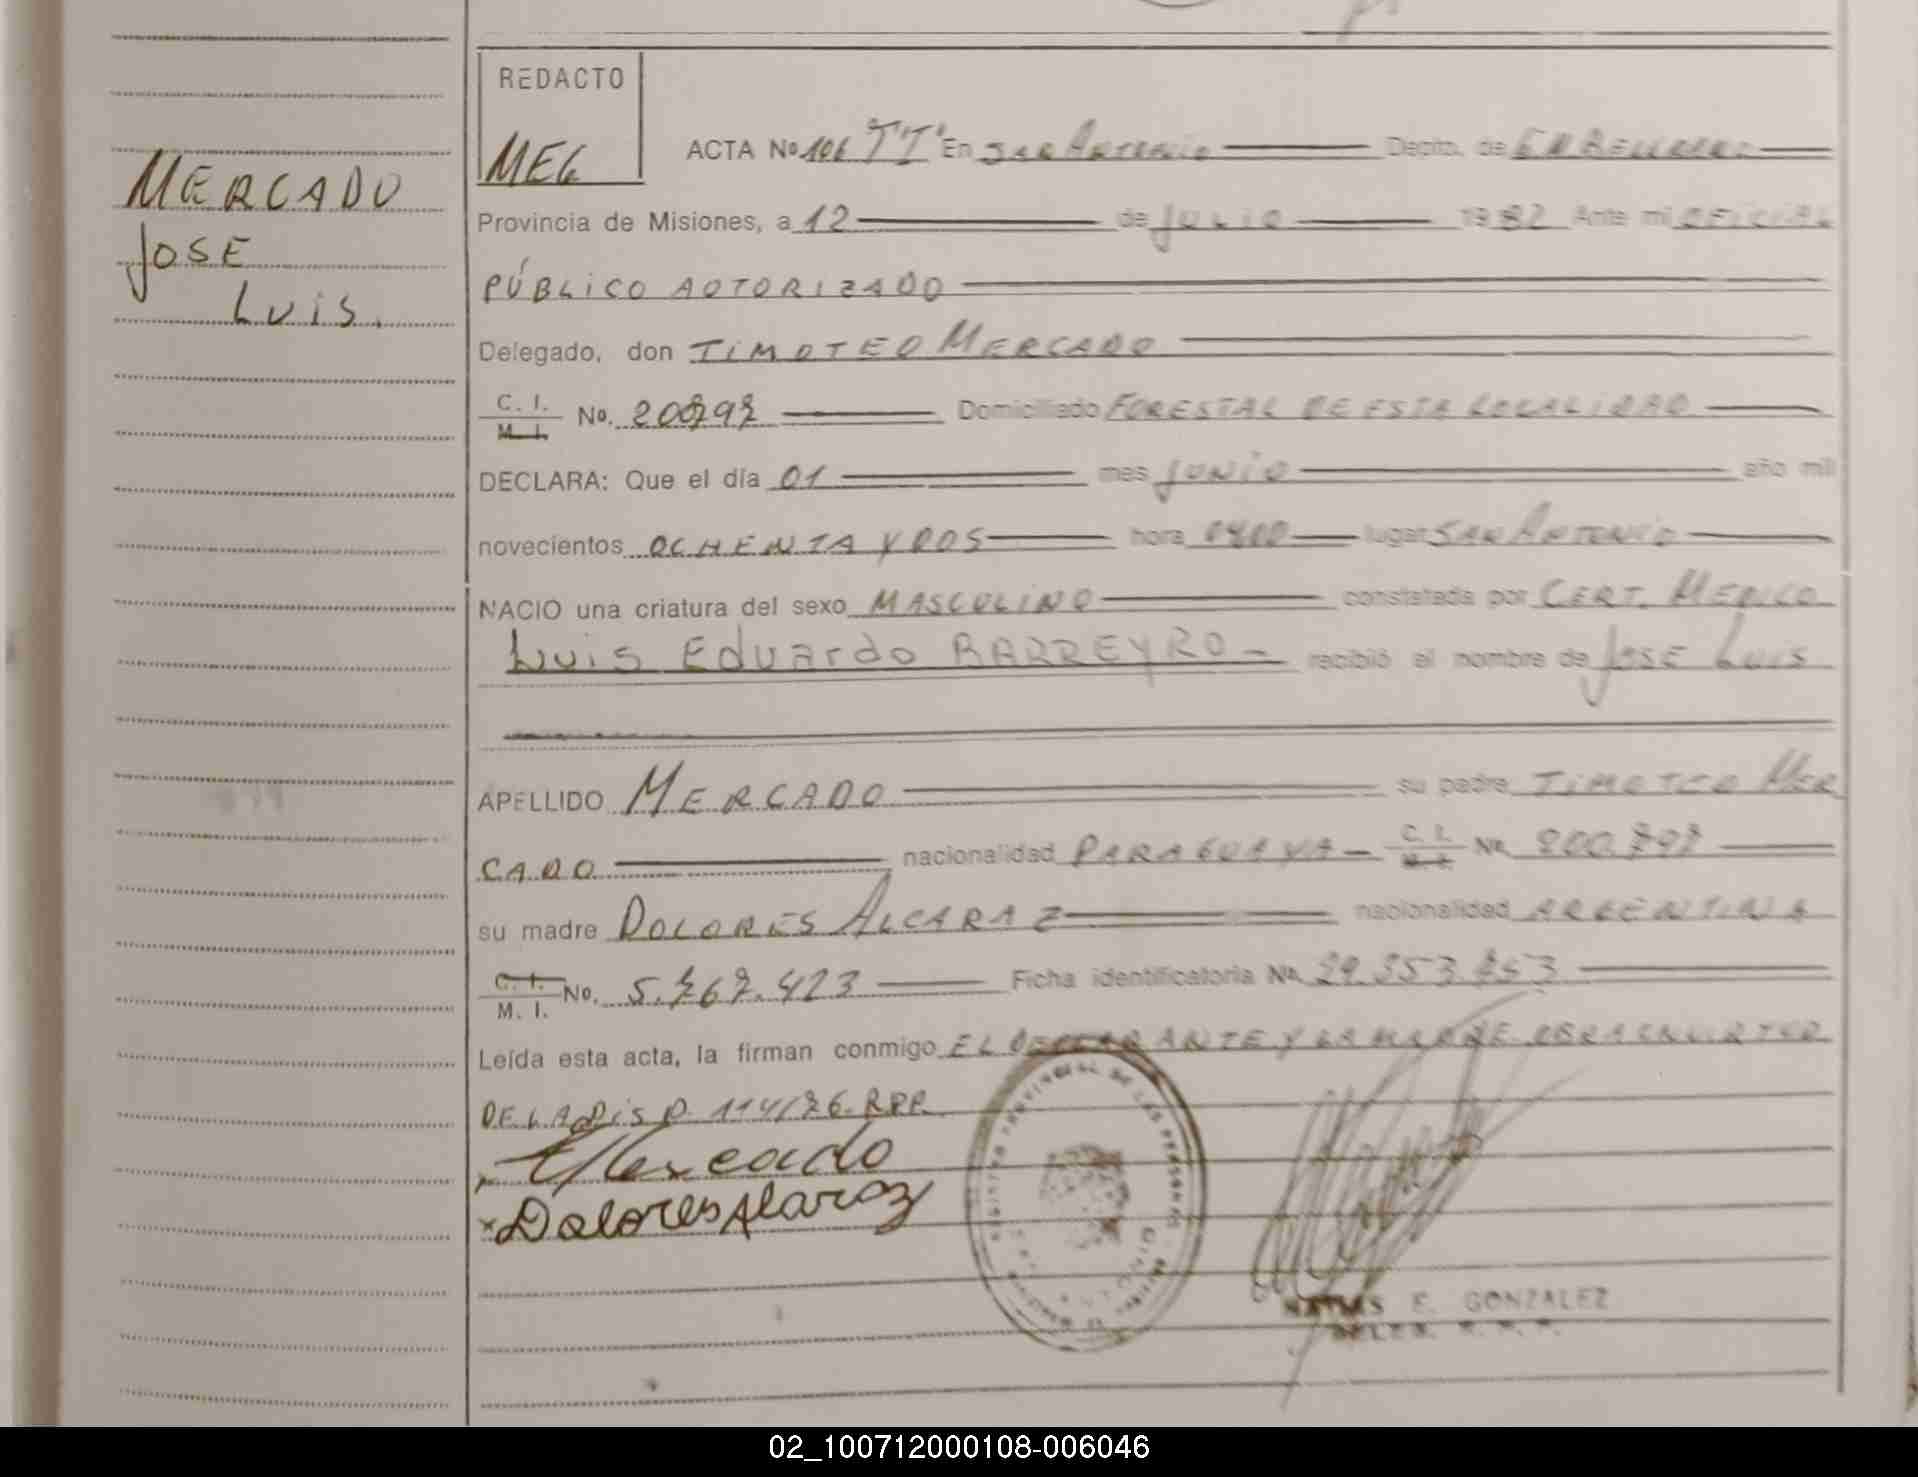 MERCADO
JOSE
LUIS.
REDACTO
MEG
ACTA Nº 106 "TI" En SAN ANTONIO Depto. de
Provincia de Misiones, a 12 de JULIO 1982 Ante mi OFICIAL
PÚBLICO AOTORIZADO
Delegado, don TIMOTEO MERCADO
C. I.
M. I. Nº. 200797 Domiciliado FORESTAL DE ESTA LOCALIDAD
DECLARA: Que el día 01 mes JUNIO año mil
novecientos OCHENTA Y DOS hora 0400 lugar SAN ANTONIO
NACIO una criatura del sexo MASCULINO constatada por CERT. MEDICO
Luis Eduardo BARREYRO - recibió el nombre de JOSE LUIS
APELLIDO MERCADO su padre TIMOTEO MER
CADO nacionalidad PARAGUAYA - C. I. M. I. Nº 200.797
su madre DOLORES ALCARAZ nacionalidad ARGENTINA
C. I.
M. I. Nº. 5.767.423 Ficha identificatoria Nº 29.353.753
Leída esta acta, la firman conmigo EL DECLARANTE Y LA MADRE. OBRA EN VIRTUD
DE LA DISP. 114/76. RPP.
TMercado
x Dolores Alaraz
REGISTRO PROVINCIAL DE LAS PERSONAS
MATIAS E. GONZALEZ
DELEG. R. P. P.
02_100712000108-006046